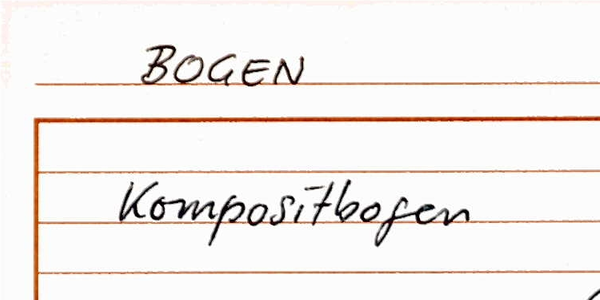 BOGEN
Kompositbogen